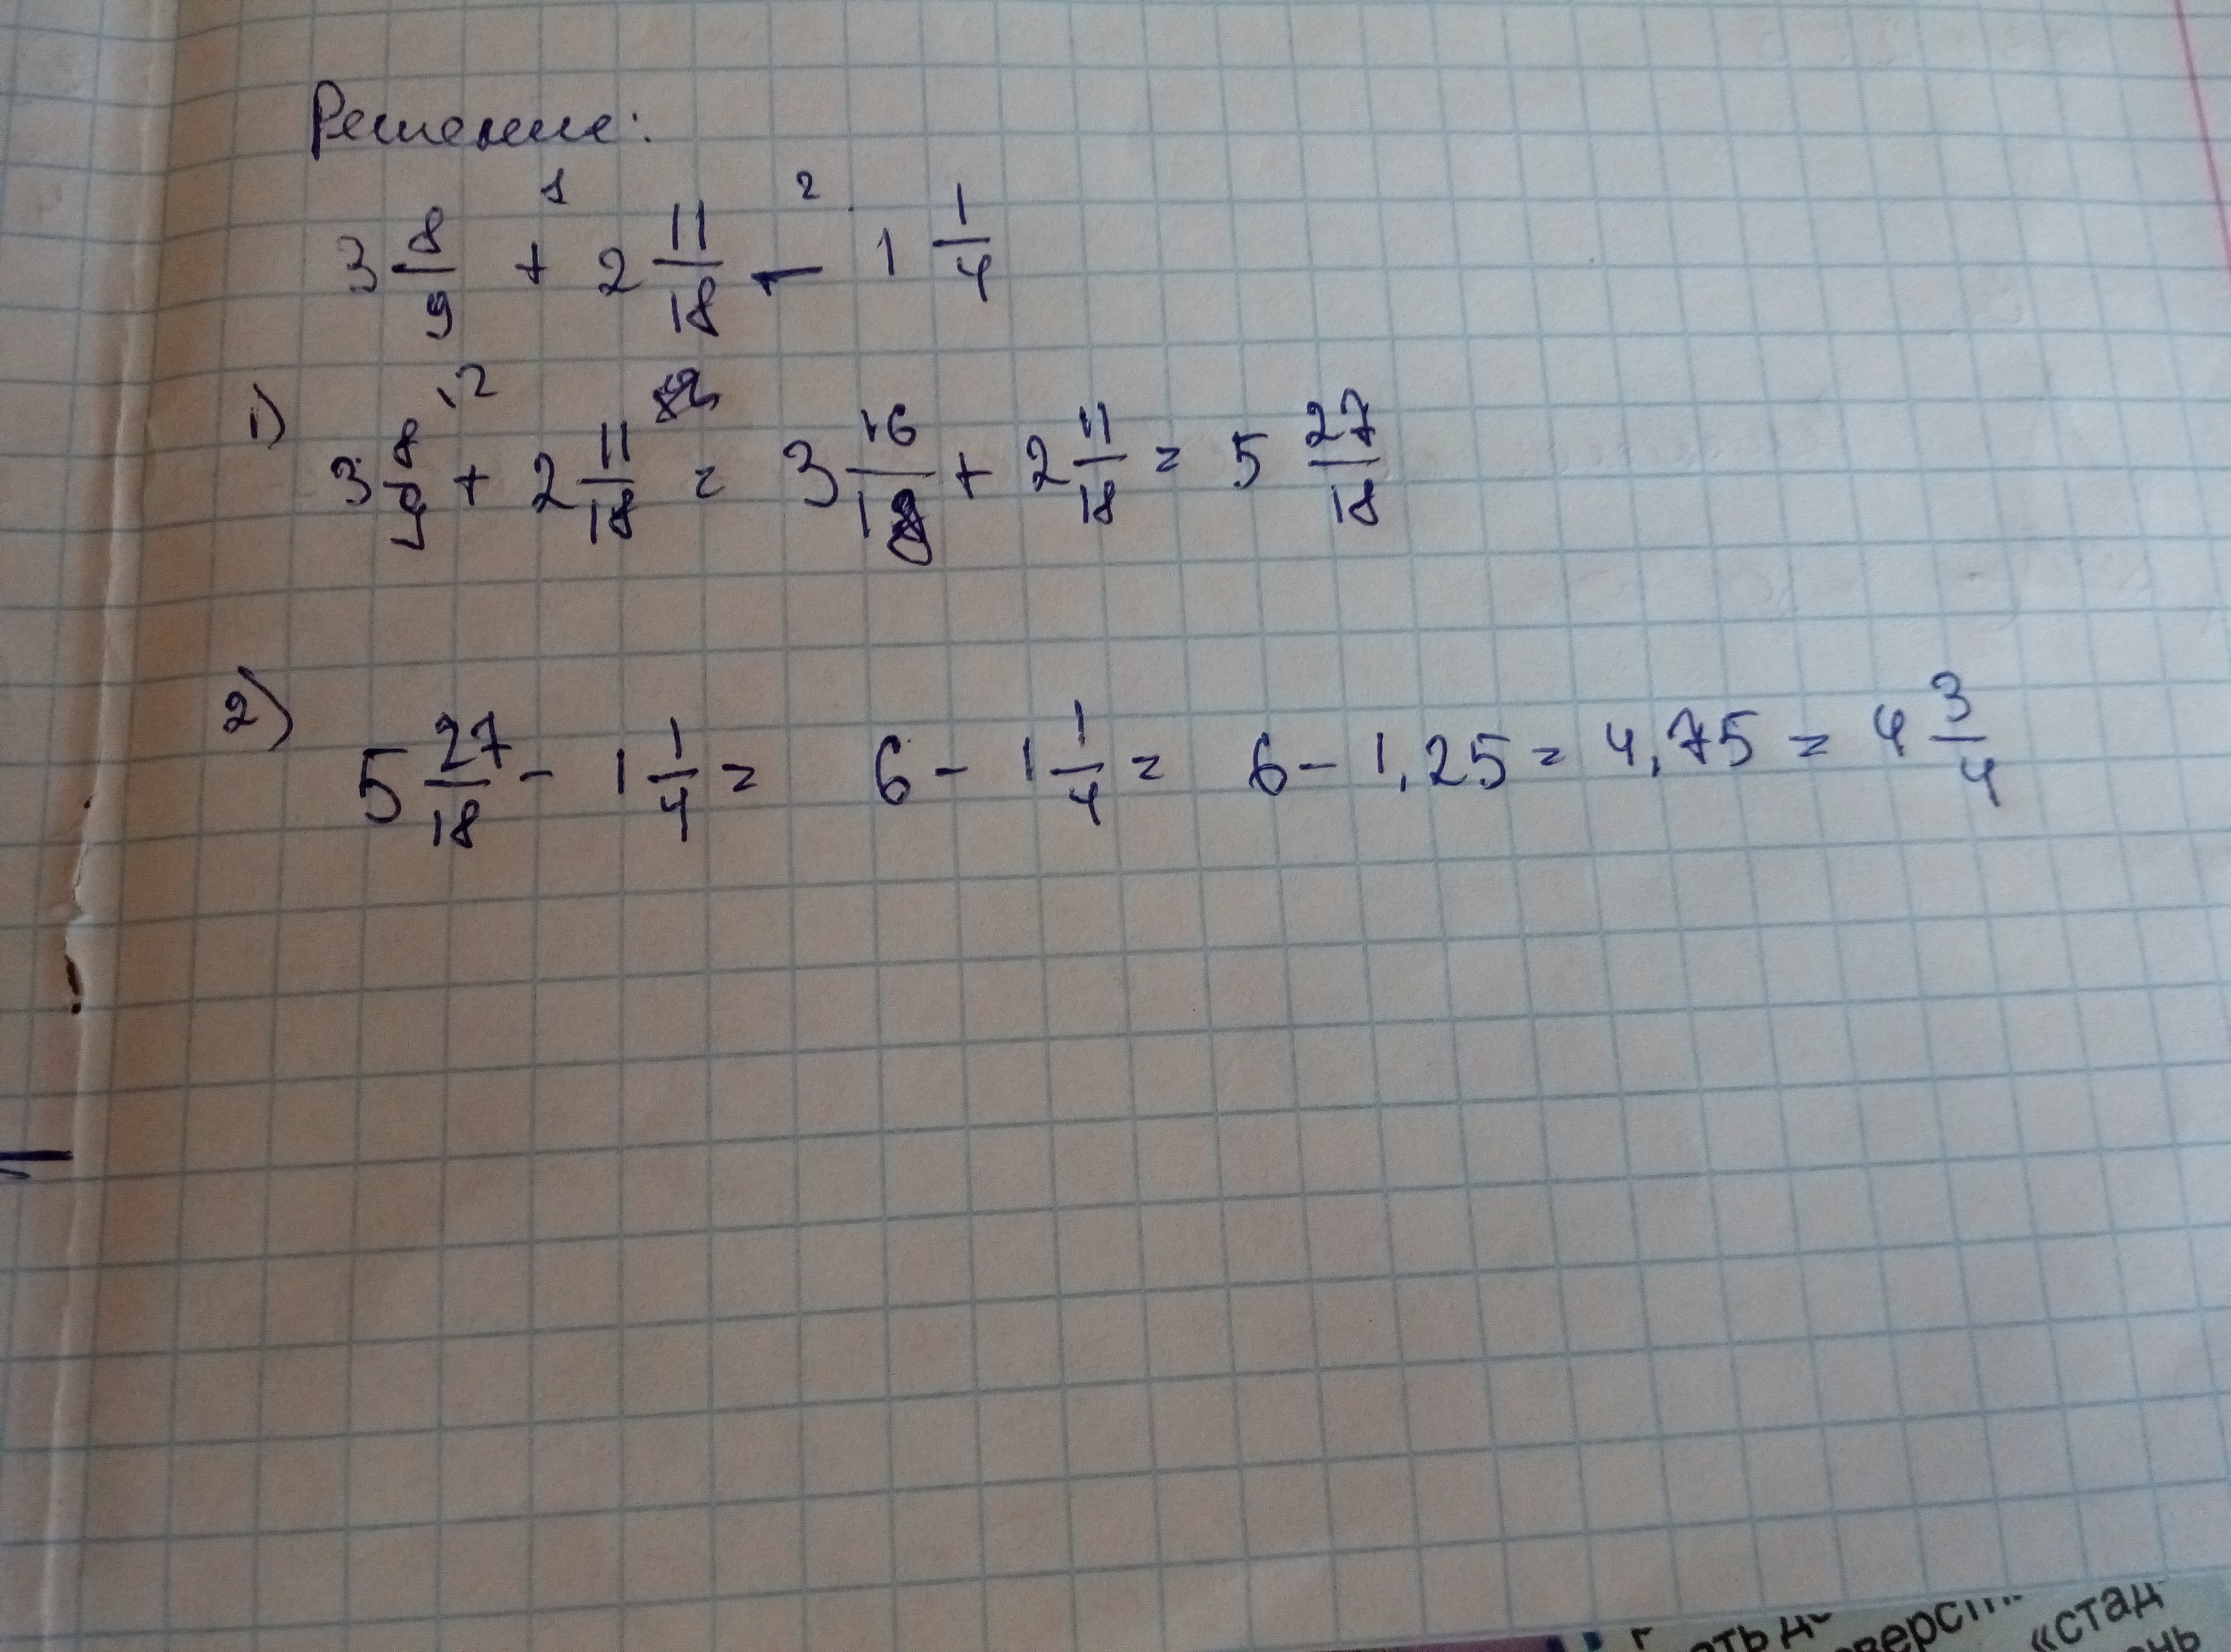 Решение:
3 8/9 + 2 11/18 - 1 1/4
1) 3 8/9 ·2 + 2 11/18 = 3 16/18 + 2 11/18 = 5 27/18
2) 5 27/18 - 1 1/4 = 6 - 1 1/4 = 6 - 1,25 = 4,75 = 4 3/4
«стад